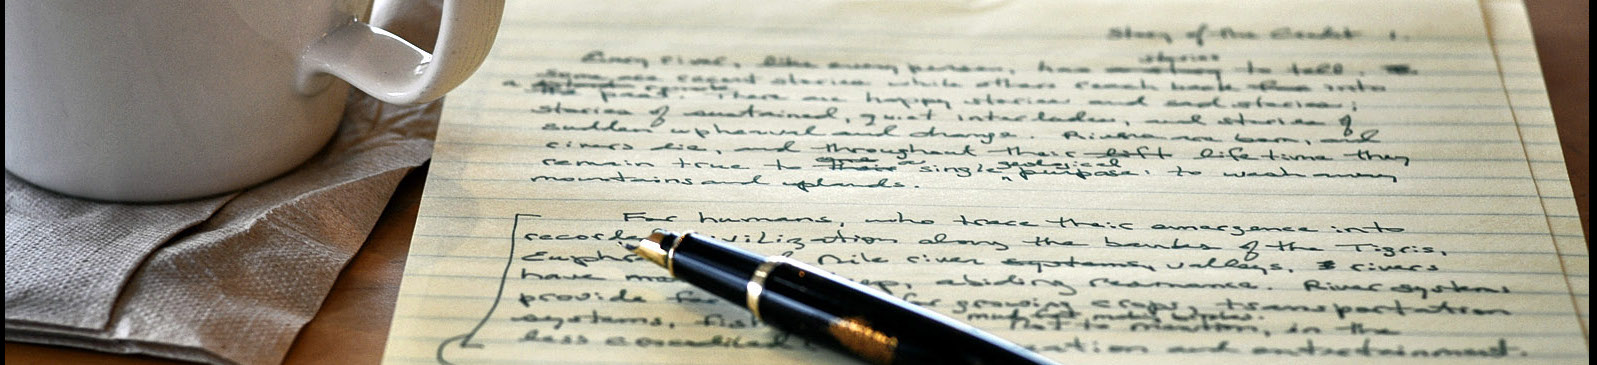 Story of the 1.
Every river, like every person, has stories to tell.
Some are recent stories while others reach back into
a past. There are happy stories and sad stories;
stories of sustained, quiet interludes, and stories of
sudden upheaval and change. Rivers are born, and
rivers die, and throughout their lifetime they
remain true to a single geological purpose: to wash away
mountains and uplands.
For humans, who trace their emergence into
recorded civilization along the banks of the Tigris,
Nile river systems valleys, rivers
have abiding resonance. River systems
provide growing crops, transportation
systems, not to mention, in the
less and entertainment.